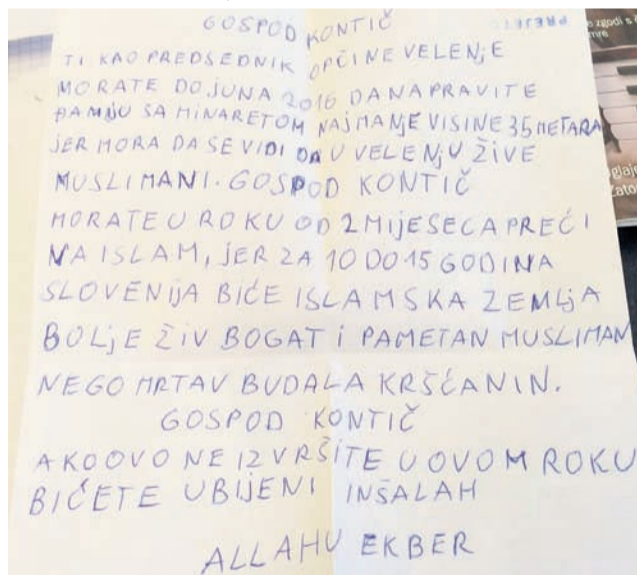 GOSPOD KONTIČ
TI KAO PREDSEDNIK OPČINE VELENJE
MORATE DO JUNA 2016 DA NAPRAVITE
ĐAMIJU SA MINARETOM NAJMANJE VISINE 35 METARA
JER MORA DA SE VIDI DA U VELENJU ŽIVE
MUSLIMANI. GOSPOD KONTIČ
MORATE U ROKU OD 2 MIJESECA PREĆI
NA ISLAM, JER ZA 10 DO 15 GODINA
SLOVENIJA BIĆE ISLAMSKA ZEMLJA
BOLJE ŽIV BOGAT I PAMETAN MUSLIMAN
NEGO MRTAV BUDALA KRŠĆANIN.
GOSPOD KONTIČ
AKO OVO NE IZVRŠITE U OVOM ROKU
BIĆETE UBIJENI INŠALAH
ALLAHU EKBER
zgodi s